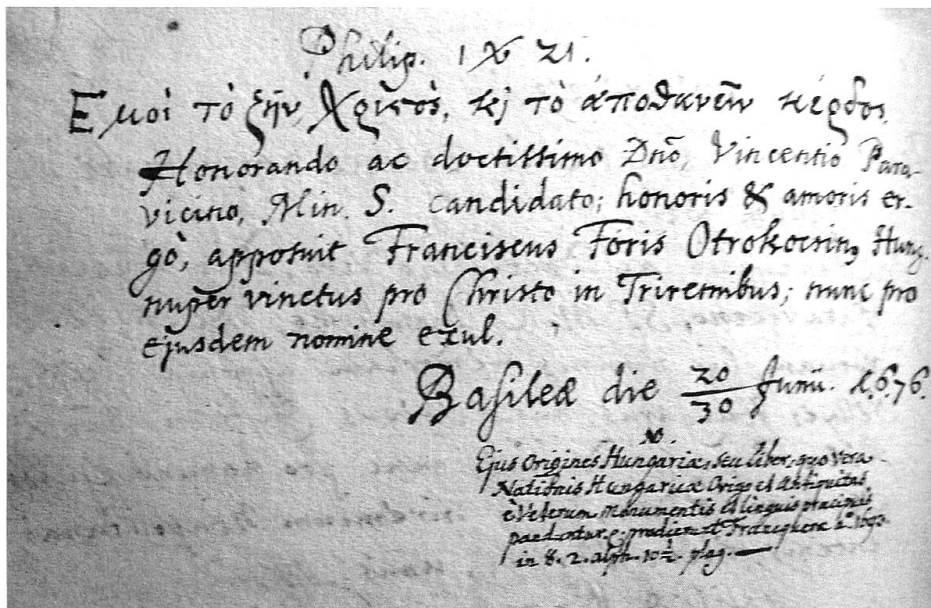 Philip. 1 ℣ 21.
Ἐμοὶ τὸ ζῆν Χριστὸς, κὶ τὸ ἀποθανεῖν κέρδος.
Honorando ac doctissimo Dnō, Vincentio Para-
vicino, Min. S. candidato; honoris & amoris er-
gò, apposuit Franciscus Foris Otrokocsinꝰ Hung.
nuper vinctus pro Christo in Triremibus; nunc pro
ejusdem nomine exul.
Basileæ die 20/30 Junii. 1676.
NB.
Ejus Origines Hungariæ, seu liber, quo vera
Nationis Hungaricæ Origo et Antiquitas
è Veterum Monumentis et linguis præcipuis
panduntur, prodierunt Franequeræ aº 1693
in 8. 2. alph. 10½ plag.